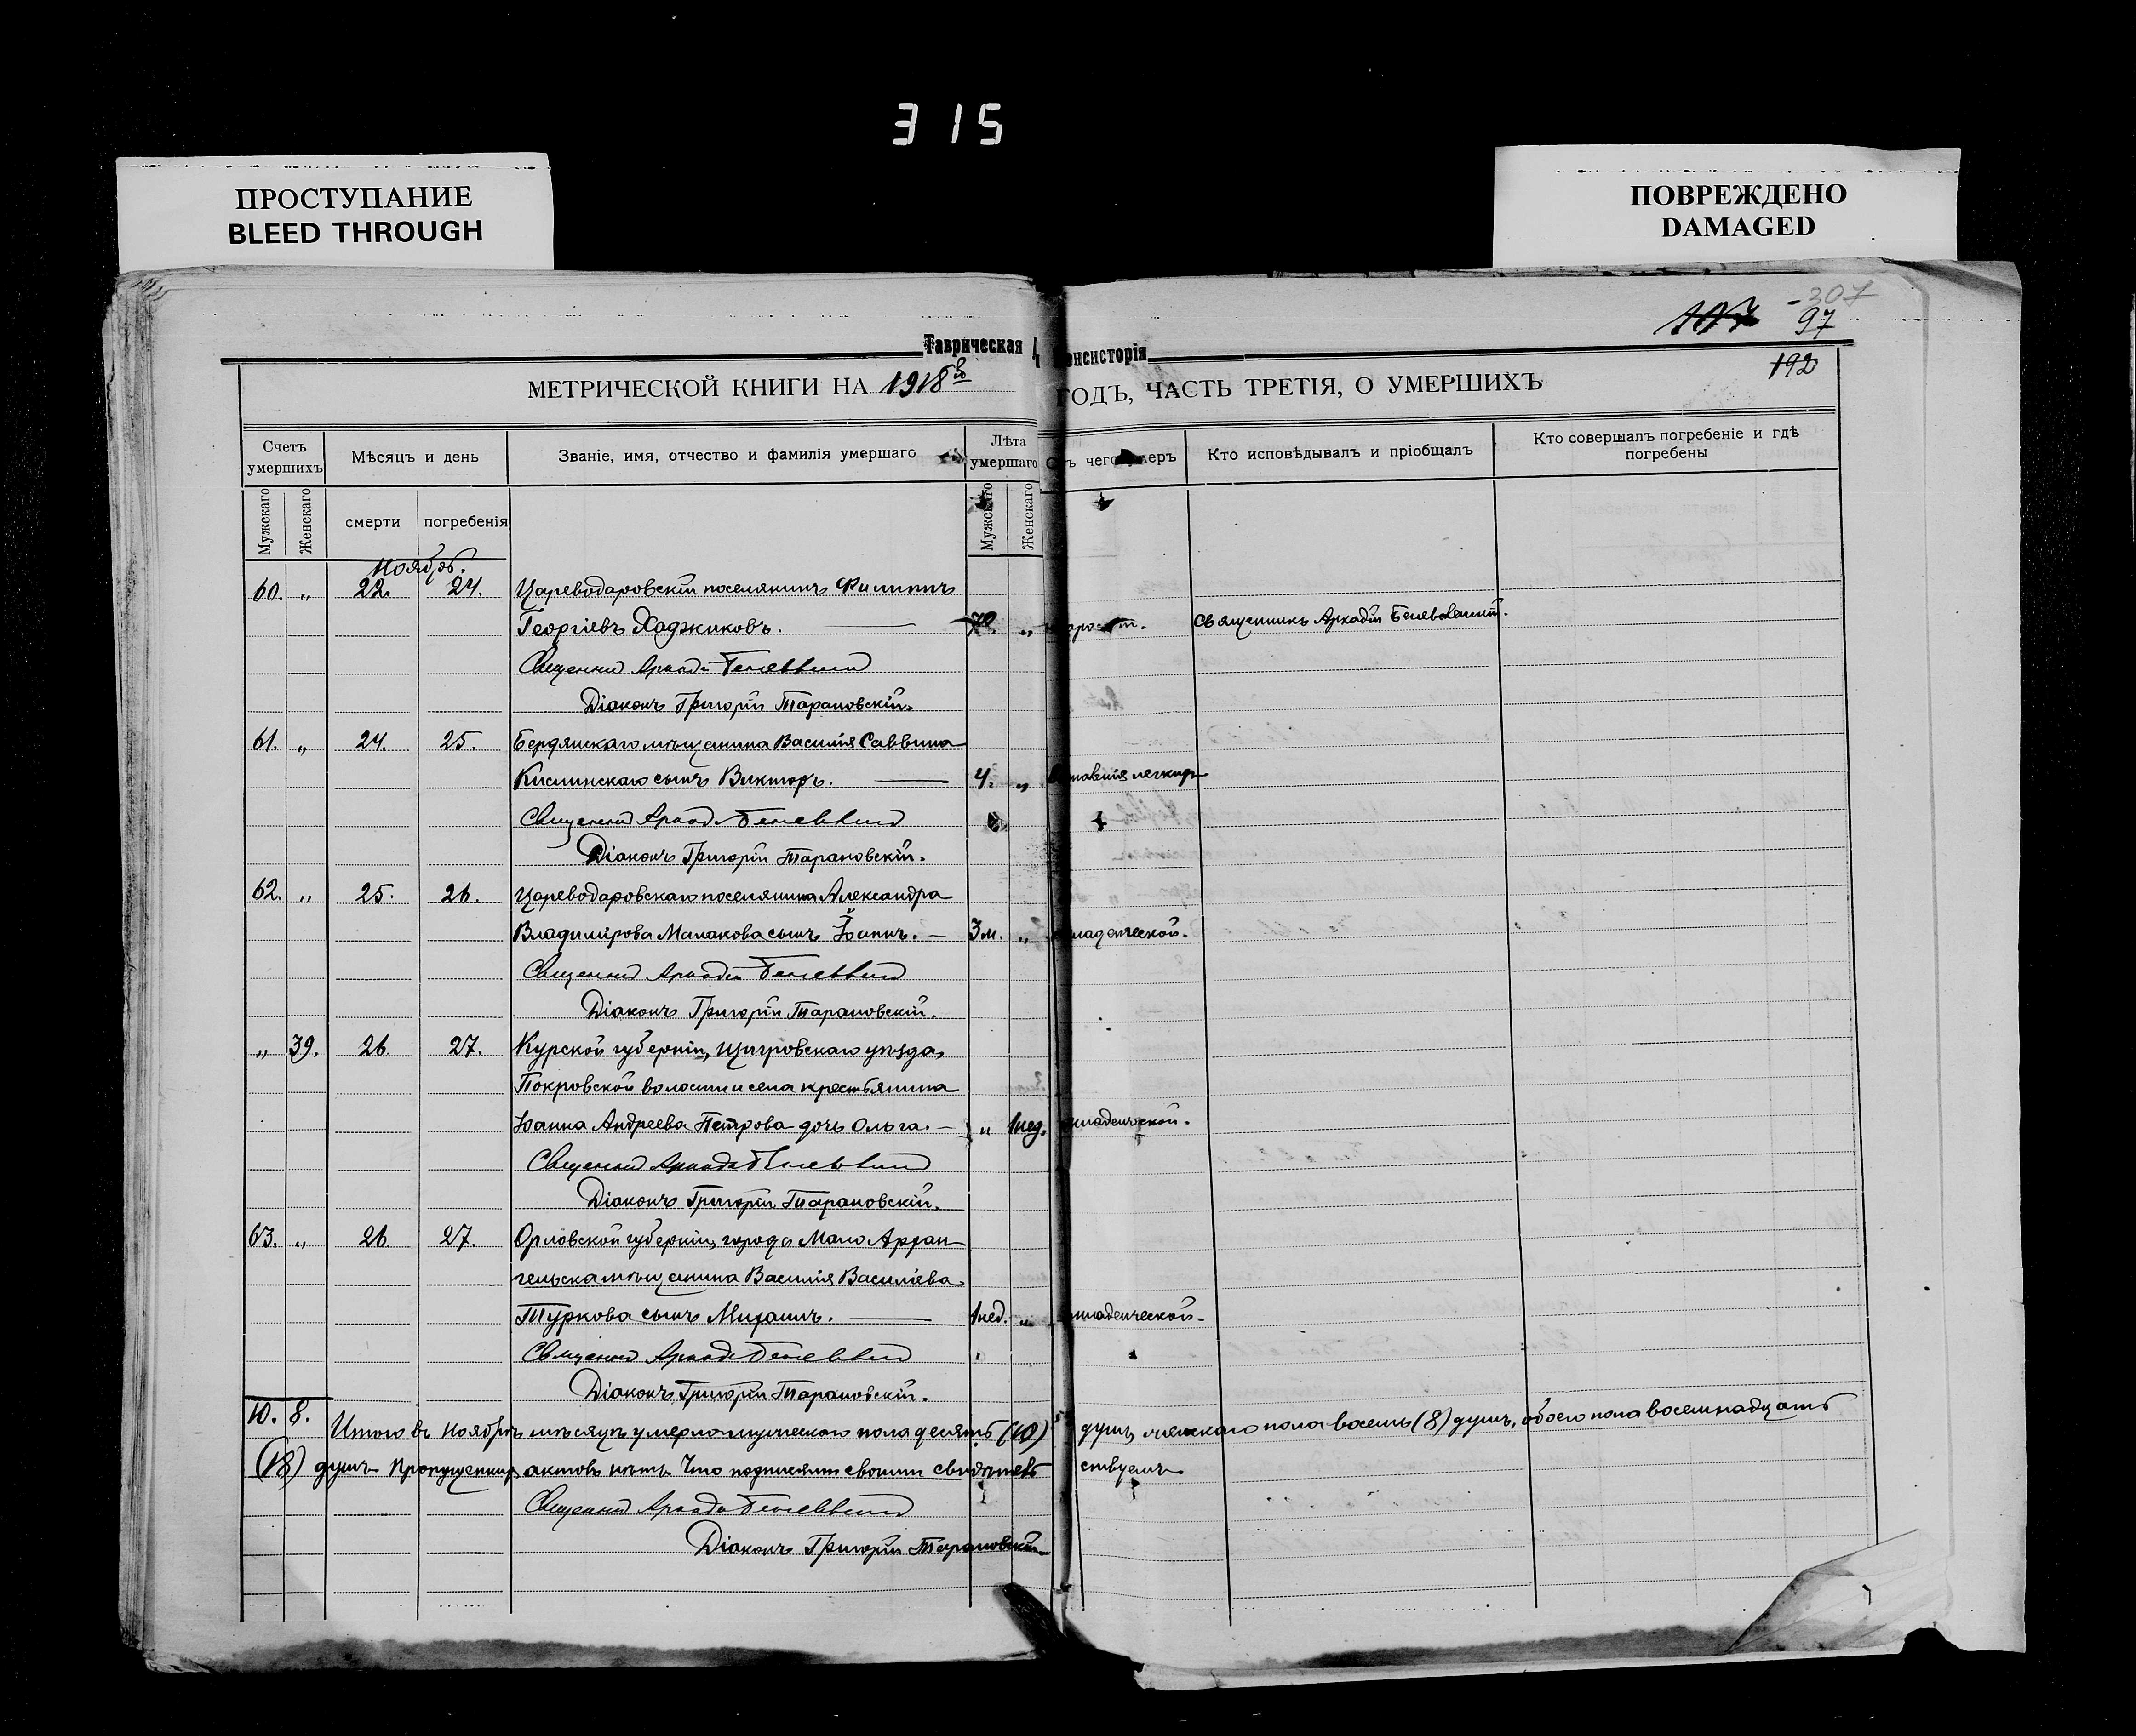 315
ПРОСТУПАНИЕ
BLEED THROUGH
ПОВРЕЖДЕНО
DAMAGED
307
97
192
Таврическая Д Консисторія
МЕТРИЧЕСКОЙ КНИГИ НА 1918й ГОДЪ, ЧАСТЬ ТРЕТІЯ, О УМЕРШИХЪ
Счетъ умершихъ
Мѣсяцъ и день
Званіе, имя, отчество и фамилія умершаго
Лѣта умершаго
чего умеръ
Кто исповѣдывалъ и пріобщалъ
Кто совершалъ погребеніе и гдѣ погребены
Мужскаго Женскаго смерти погребенія Мужскаго Женскаго
Ноябрь.
60. „ 22. 24. Цареводаровскій поселянинъ Филиппъ
Георгіевъ Хаджиковъ. — 70. „ Священникъ Аркадій
Священникъ Аркадій
Діаконъ Григорій Тарановскій.
61. „ 24. 25. Бердянскаго мѣщанина Василія Саввина
Кислинскаго сынъ Викторъ. — 4. „ легкихъ
Священникъ Аркадій
Діаконъ Григорій Тарановскій.
62. „ 25. 26. Цареводаровскаго поселянина Александра
Владимірова Малакова сынъ Іоаннъ. — 3 м. „ младенческой.
Священникъ Аркадій
Діаконъ Григорій Тарановскій.
„ 39. 26. 27. Курской губерніи, Щигровскаго уѣзда,
Покровской волости и села крестьянина
Іоанна Андреева Петрова дочь Ольга. — „ 1 нед. младенческой.
Священникъ Аркадій
Діаконъ Григорій Тарановскій.
63. „ 26. 27. Орловской губерніи, города Мало Архан
гельска мѣщанина Василія Василіева
Туркова сынъ Михаилъ. — 1 нед. „ младенческой.
Священникъ Аркадій
Діаконъ Григорій Тарановскій.
10. 8. Итого въ Ноябрѣ мѣсяцѣ умерло мужескаго пола десять (10) душъ, женскаго пола восемь (8) душъ, обоего пола восемнадцать
(18) душъ. Пропущенныхъ актовъ нѣтъ. Что подписями своими свидѣтельствуемъ
Священникъ Аркадій
Діаконъ Григорій Тарановскій